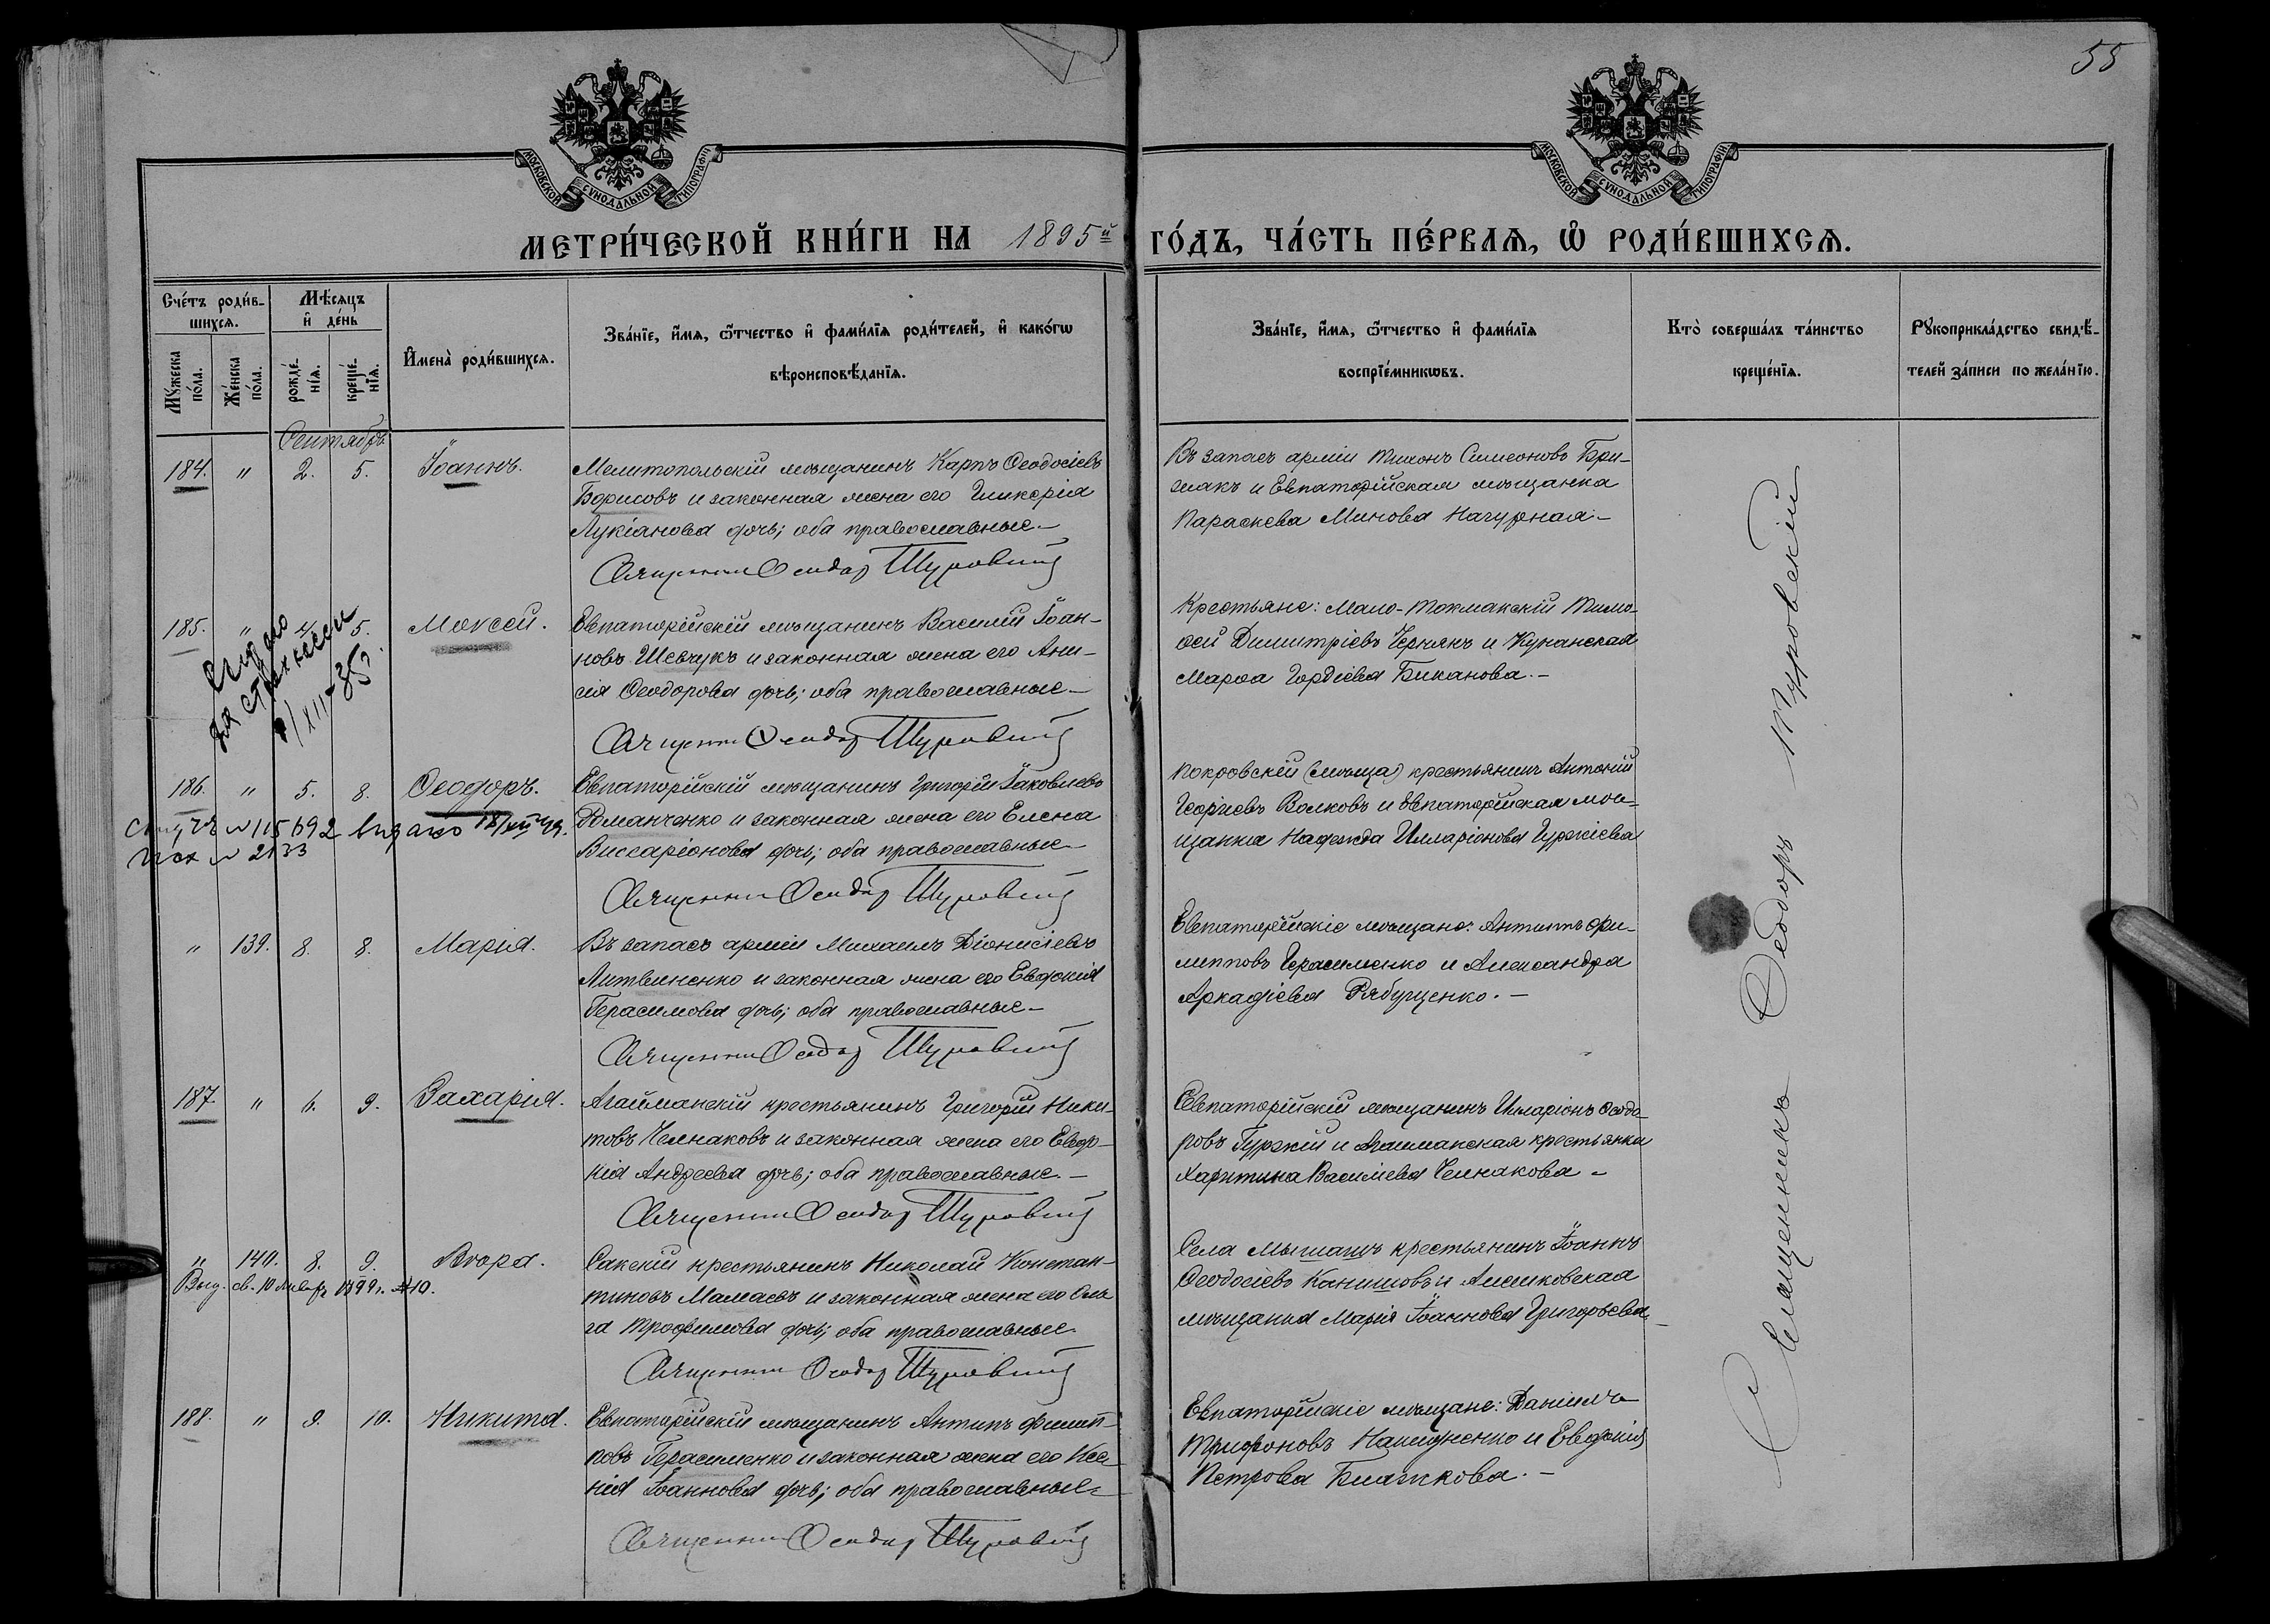 55
МОСКОВСКОЙ СѴНОДАЛЬНОЙ ТИПОГРАФІИ
МОСКОВСКОЙ СѴНОДАЛЬНОЙ ТИПОГРАФІИ
МЕТРИ́ЧЕСКОЙ КНИ́ГИ НА 1895й ГО́ДЪ, ЧА́СТЬ ПЕ́РВАЯ, Ѡ҆ РОДИ́ВШИХСЯ.
Сче́тъ роди́в-
шихсѧ.
Мꙋ́жеска
по́ла.
Же́нска
по́ла.
Мѣ́сѧцъ
и҆ де́нь
рожде́-
нїѧ.
креще́-
нїѧ.
И҆мена̀ роди́вшихсѧ.
Зва́нїе, и҆́мѧ, ѻ҆́тчество и҆ фами́лїѧ роди́телей, и҆ како́гѡ
вѣроисповѣ́данїѧ.
Зва́нїе, и҆́мѧ, ѻ҆́тчество и҆ фами́лїѧ
воспрїе́мникѡвъ.
Кто̀ соверша́лъ та́инство
креще́нїѧ.
Рꙋкоприкла́дство свидѣ́-
телей за́писи по жела́нїю.
Сентябрь
184. " 2. 5. Іоаннъ.
Мелитопольскій мѣщанинъ Карпъ Ѳеодосіевъ
Борисовъ и законная жена его Гликерія
Лукіанова дочь; оба православные.-
Священникъ Ѳеодоръ Туровскій
Въ запасѣ арміи Тихонъ Симеоновъ
и Евпаторійская мѣщанка
Параскева Минова
185. " 4. 5. Моисей.
Евпаторійскій мѣщанинъ Василій Іоан-
новъ Шевчукъ и законная жена его Ани-
сія Ѳеодорова дочь; оба православные-
Священникъ Ѳеодоръ Туровскій
Крестьяне: Мало-Токмакскій Тимо-
ѳей Димитріевъ Чернякъ и
Марѳа Гордіева Биканова.-
XII-35
186. " 5. 8. Ѳеодоръ.
Евпаторійскій мѣщанинъ Григорій Іаковлевъ
Романченко и законная жена его Елена
Виссаріонова дочь; оба православные-
Священникъ Ѳеодоръ Туровскій
Покровскій крестьянинъ Антоній
Георгіевъ Волковъ и Евпаторійская мѣ-
щанка Надежда Илларіонова Гуржіева
N 115692 выдано
Исх N 2133
" 139. 8. 8. Марія.
Въ запасѣ арміи Михаилъ Діонисіевъ
Литвиненко и законная жена его Евдокія
Герасимова дочь; оба православные-
Священникъ Ѳеодоръ Туровскій
Евпаторійскіе мѣщане: Антипъ Фи-
липповъ Герасименко и Александра
Аркадіева Рябущенко.-
187. " 6. 9. Захарія.
Агайманскій крестьянинъ Григорій Ники-
товъ Челнаковъ и законная жена его Евдо-
кія Андреева дочь; оба православные.-
Священникъ Ѳеодоръ Туровскій
Евпаторійскій мѣщанинъ Илларіонъ Ѳеодо-
ровъ Гуржій и Агайманская крестьянка
Харитина Василіева Челнакова -
" 140. 8. 9. Вѣра.
Выд. св. 10 Январ 1899г. №10.
Сакскій крестьянинъ Николай Констан-
тиновъ Мамаевъ и законная жена его Оль-
га Трофимова дочь; оба православные.
Священникъ Ѳеодоръ Туровскій
Села крестьянинъ Іоаннъ
Ѳеодосіевъ и Алешковская
мѣщанка Марія Іоаннова Григорьева
188. " 9. 10. Никита.
Евпаторійскій мѣщанинъ Антипъ Филип-
повъ Герасименко и законная жена его Ксе-
нія Іоаннова дочь; оба православные-
Священникъ Ѳеодоръ Туровскій
Евпаторійскіе мѣщане: Даніилъ
Трифоновъ и Евдокія
Петрова
Священникъ Ѳеодоръ Туровскій